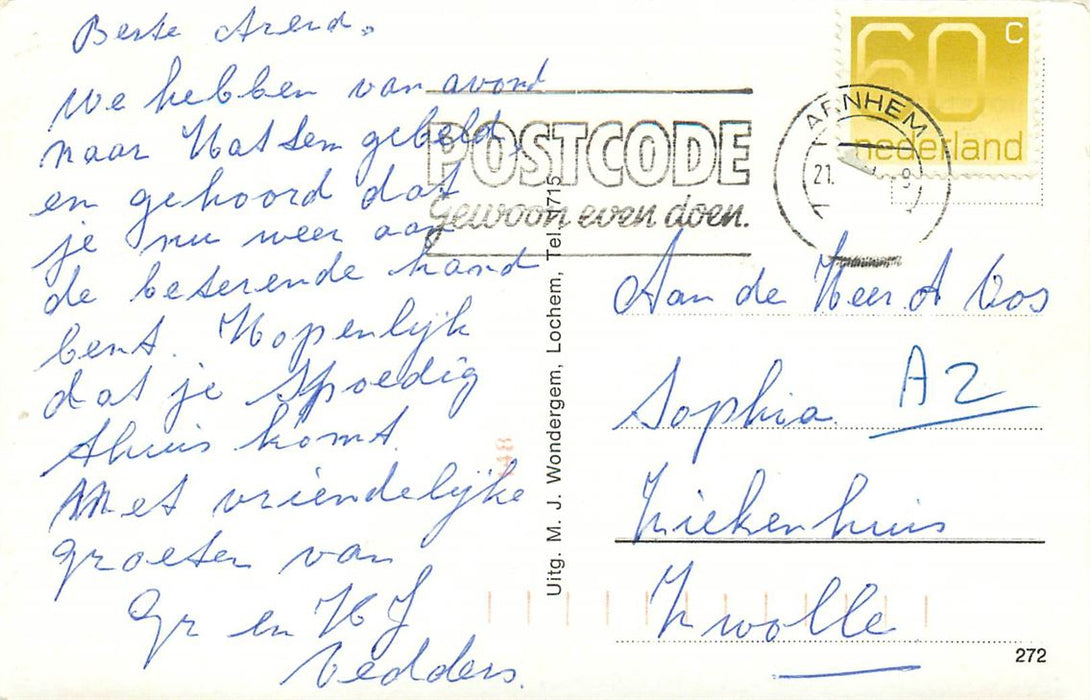 Beste Arend.
We hebben van avond
naar Hattem gebeld,
en gehoord dat
je nu weer aan
de beterende hand
bent. Hopenlijk
dat je spoedig
thuis komt.
Met vriendelijke
groeten van
Gr en H J
Vedders.
POSTCODE
gewoon even doen.
Uitg. M. J. Wondergem, Lochem, Tel. 1715
60 C
nederland
ARNHEM
21.
Aan de Heer A Vos
Sophia A2
Ziekenhuis
Zwolle
272